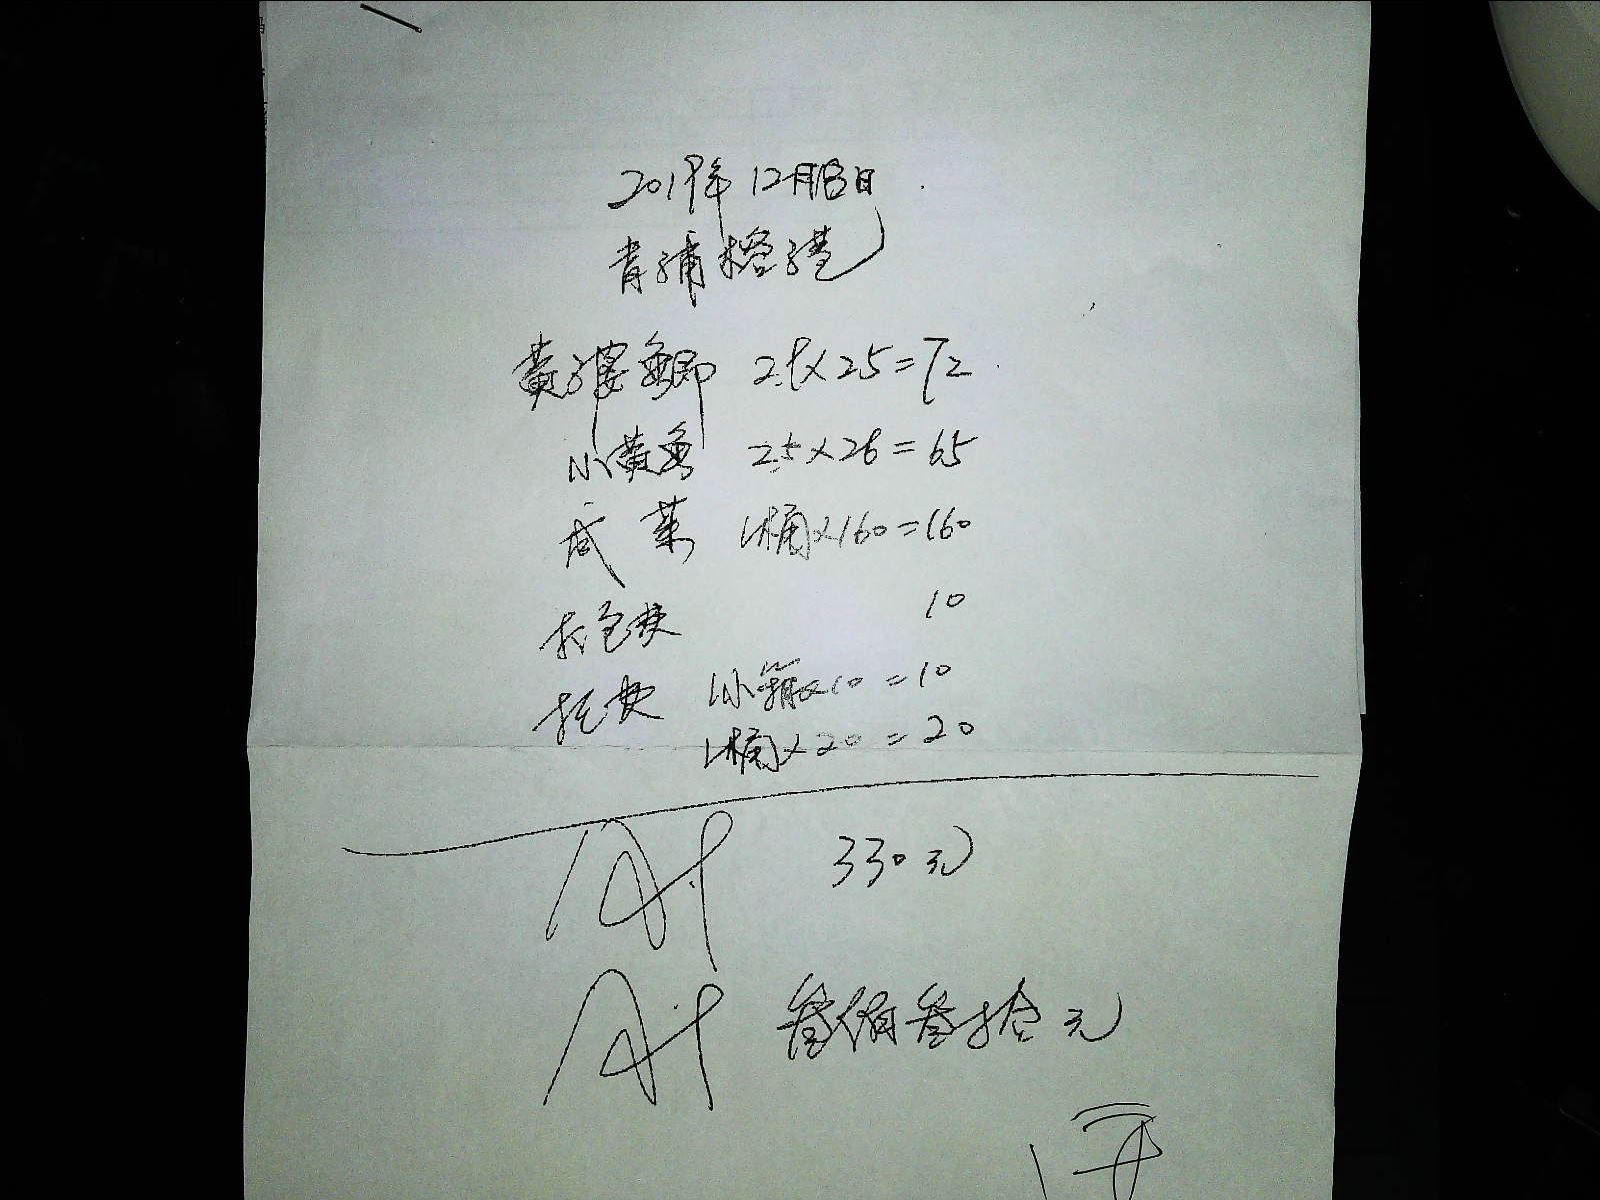 2019年12月13日
青浦榕港
黄婆鲫 2.9×25=72
小黄鱼 2.5×26=65
咸菜 1桶×160=160
打包费 10
托费 1小箱×10=10
1桶×20=20
合计 330元
合计 叁佰叁拾元